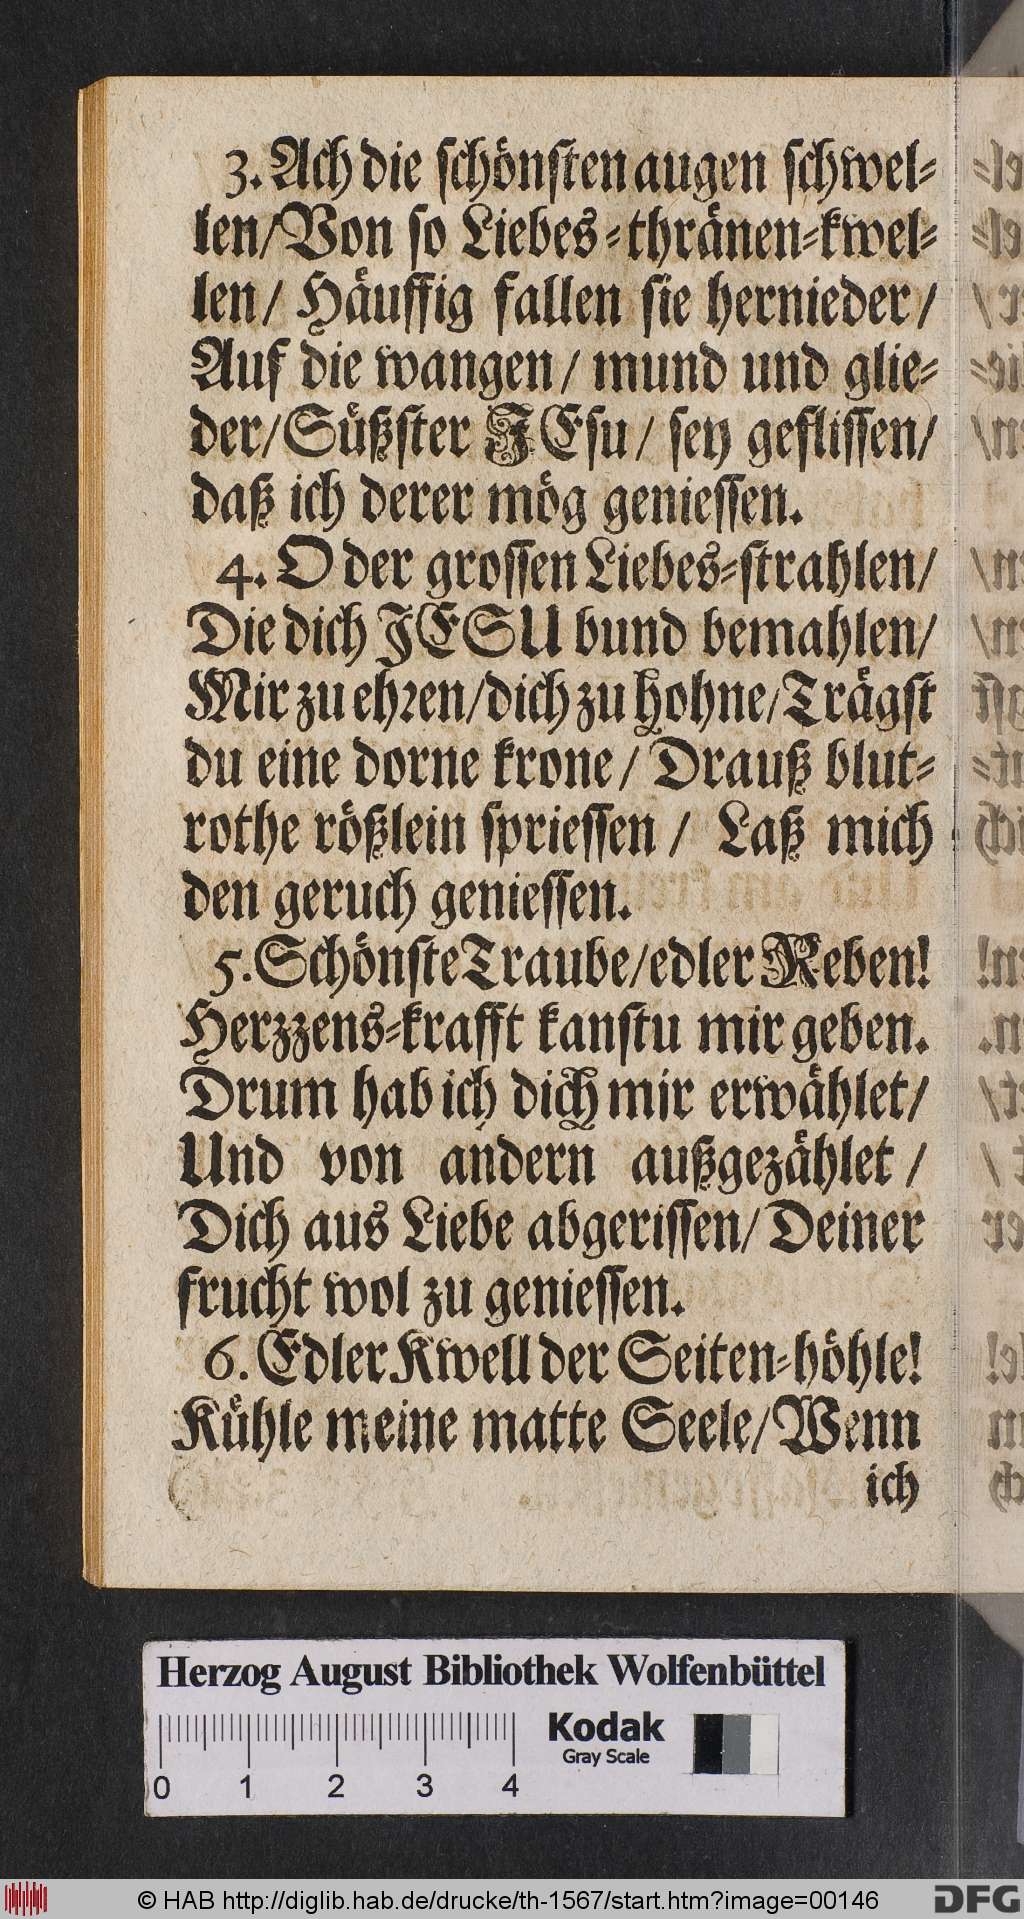 3. Ach die schönsten augen schwel-
len/ Von so Liebes-thränen-kwel-
len/ Häuffig fallen sie hernieder/
Auf die wangen/ mund und glie-
der/ Süßster JEsu/ sey geflissen/
daß ich derer mög geniessen.
4. O der grossen Liebes-strahlen/
Die dich JESU bund bemahlen/
Mir zu ehren/ dich zu hohne/ Trägst
du eine dorne krone/ Drauß blut-
rothe rößlein spriessen/ Laß mich
den geruch geniessen.
5. Schönste Traube/ edler Reben!
Herzzens-krafft kanstu mir geben.
Drum hab ich dich mir erwählet/
Und von andern außgezählet/
Dich aus Liebe abgerissen/ Deiner
frucht wol zu geniessen.
6. Edler Kwell der Seiten-höhle!
Kühle meine matte Seele/ Wenn
ich
Herzog August Bibliothek Wolfenbüttel
Kodak
Gray Scale
0 1 2 3 4
© HAB http://diglib.hab.de/drucke/th-1567/start.htm?image=00146
DFG